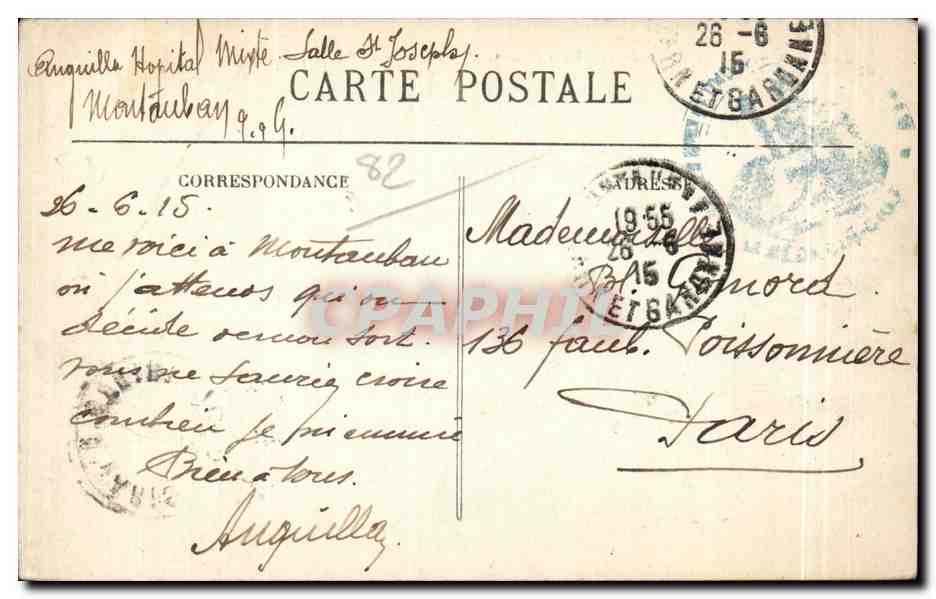 Anguilla Hopital Mixte Salle St Joseph
Montauban
T. & G.
CARTE POSTALE
26 -6
15
RN ET GARONNE
82
CORRESPONDANCE
26-6-15.
me voici à Montauban
où j'attends qu'on
décide de mon sort.
vous ne sauriez croire
combien je m'ennuie
Bien à vous.
Anguilla
ADRESSE
19 55
26 -6
15
RN ET GARONNE
Mademoiselle
Bl.
136 faub. Poissonnière
Paris
CPAPHIL